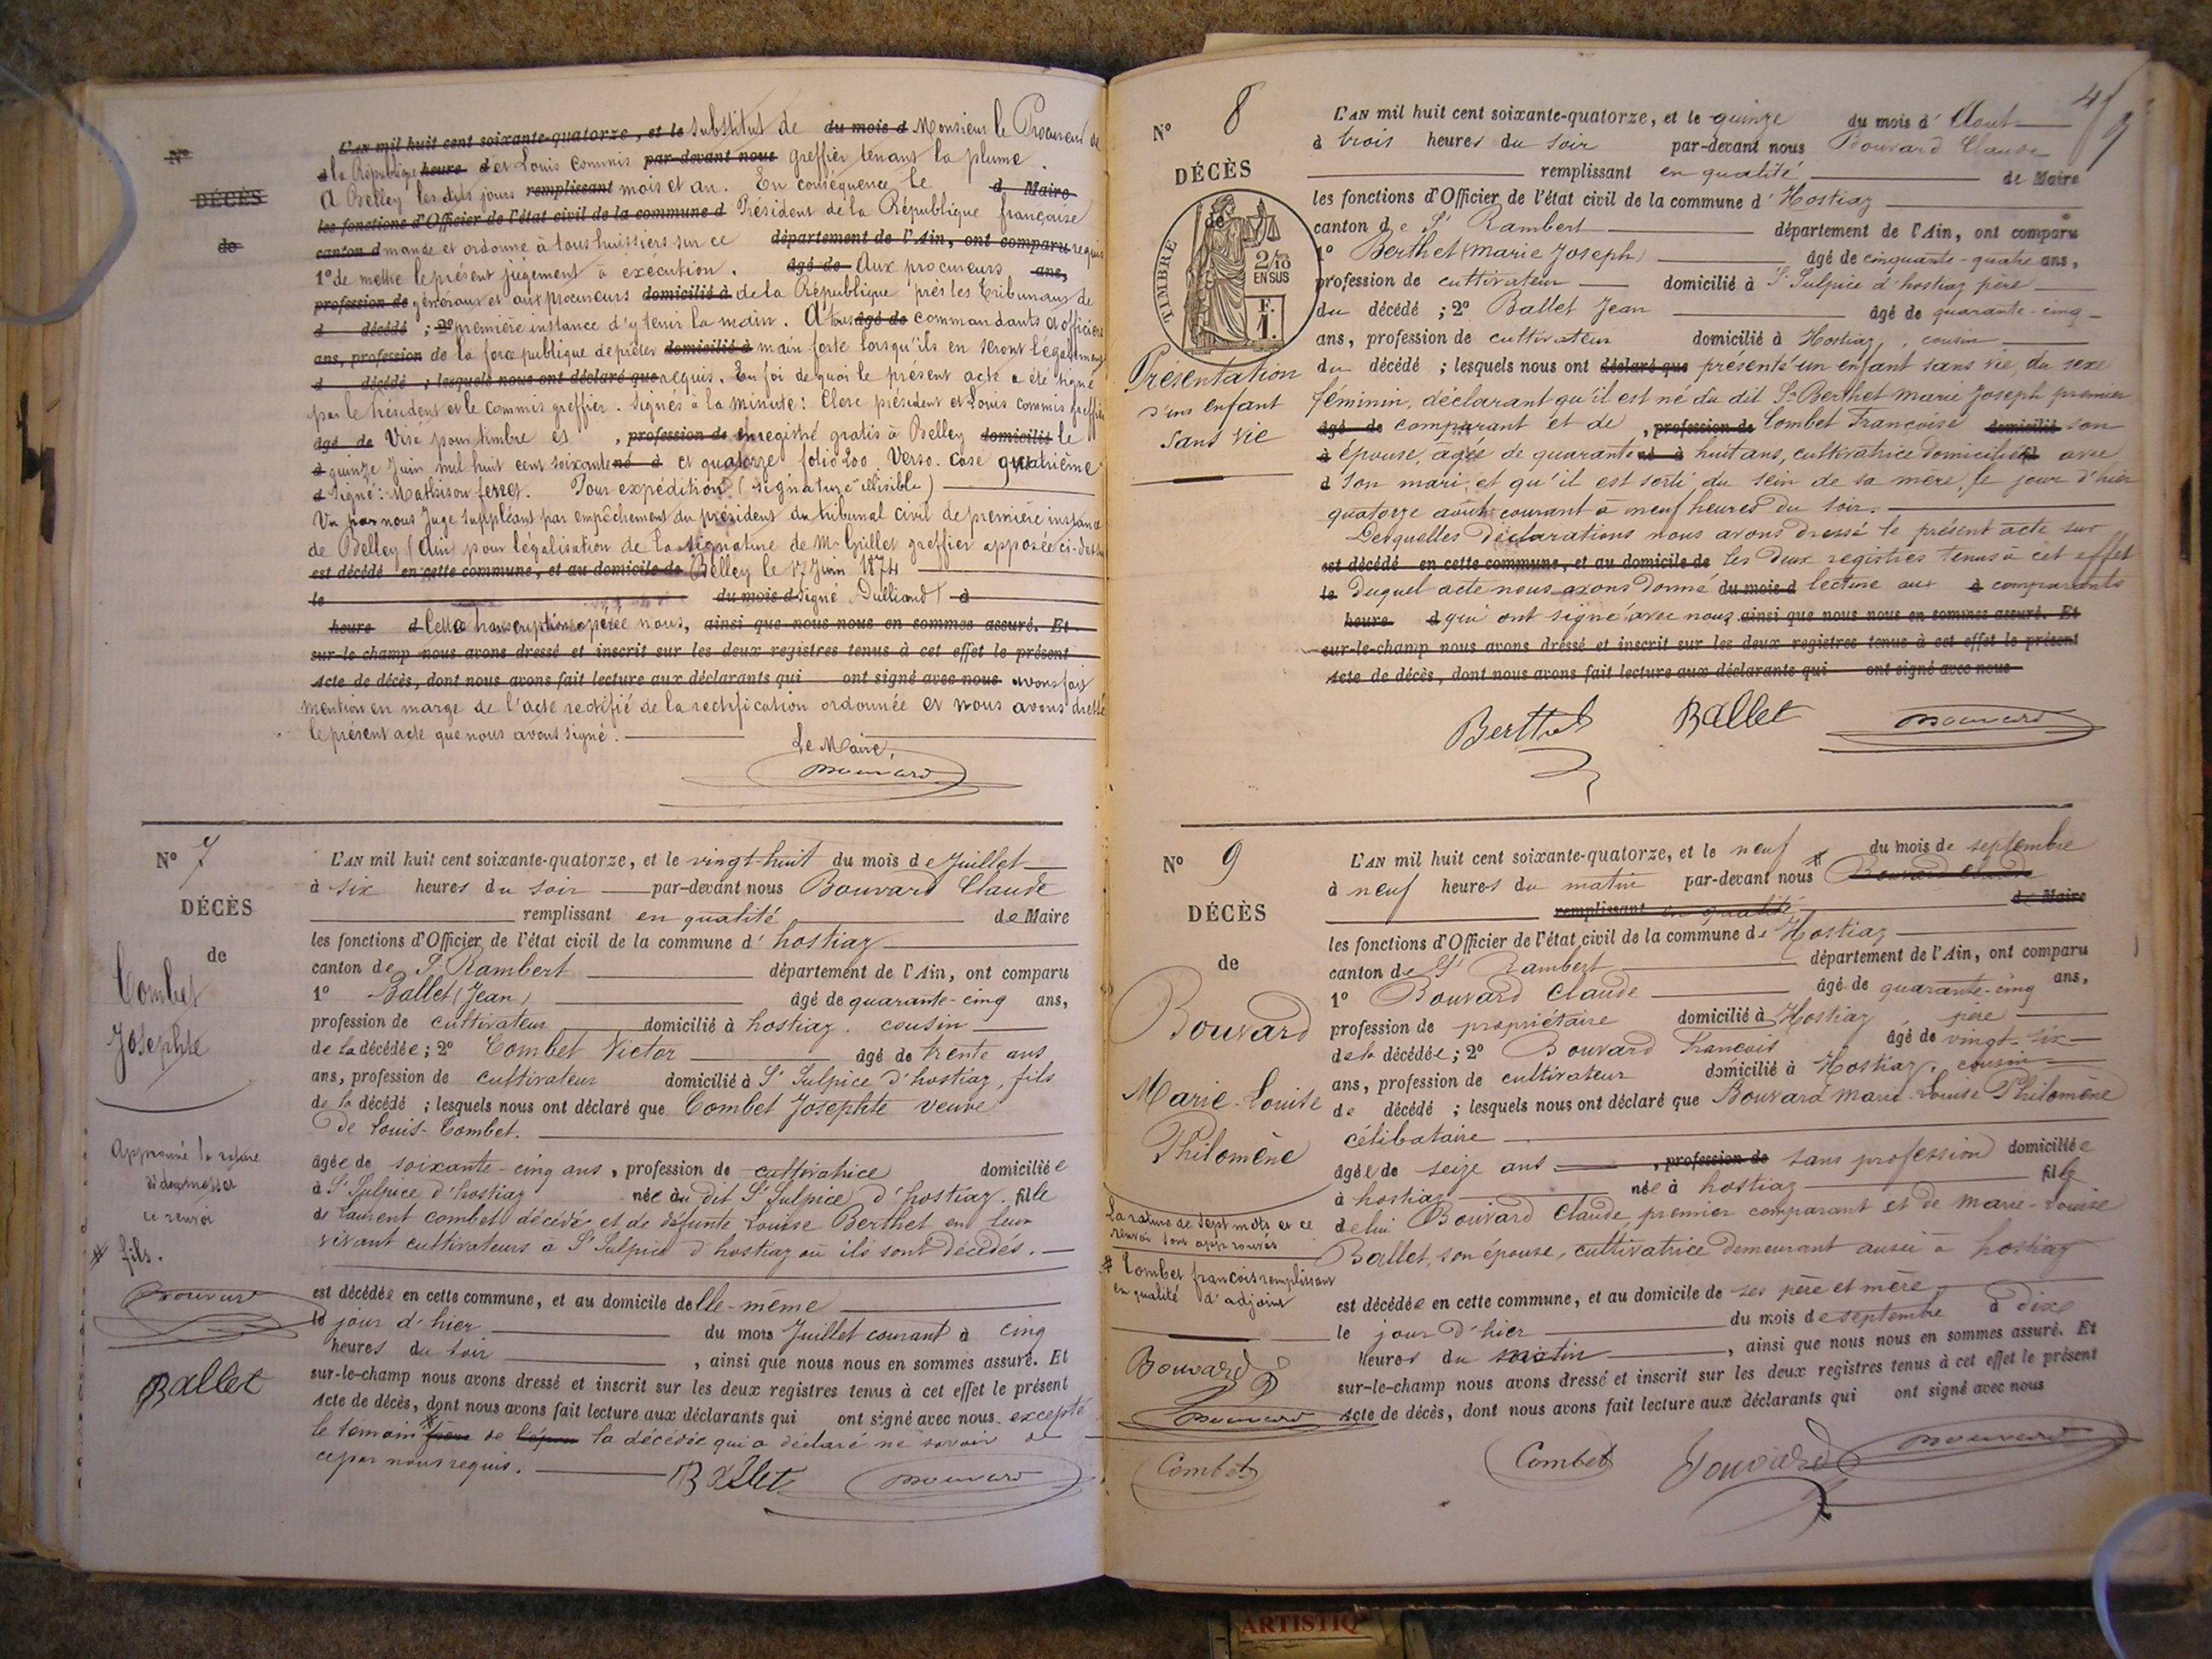 N°
DÉCÈS
de
L'AN mil huit cent soixante-quatorze, et le substitut de du mois d Monsieur le Procureur de
à la République heure d et Louis commis par-devant nous greffier tenant la plume.
A Belley les dits jours remplissant mois et an. En conséquence le d Maire
les fonctions d'Officier de l'état civil de la commune d Président de la République française
canton d mande et ordonne à tous huissiers sur ce département de l'Ain, ont comparu requis
1° de mettre le présent jugement à exécution. âgé de Aux procureurs ans,
profession de généraux et aux procureurs domicilié à de la République près les tribunaux de
d décédé ; 2° première instance d'y tenir la main. A tous âgé de commandants et officiers
ans, profession de la force publique de prêter domicilié à main forte lorsqu'ils en seront légalement
d décédé ; lesquels nous ont déclaré que requis. En foi de quoi le présent acte a été signé
par le Président et le commis greffier. Signés à la minute : Clerc président et Louis commis greffier
âgé de Visé pour timbre et , profession de enregistré gratis à Belley domicilié le
à quinze Juin mil huit cent soixante né à et quatorze folio 200 Verso. Case quatrième
d Signé : Mathison ferret. Pour expédition (signature illisible)
Vu par nous Juge Suppléant par empêchement du président du tribunal civil de première instance
de Belley (Ain) pour légalisation de la signature de Mr Grillet greffier apposée ci-dessus
est décédé en cette commune, et au domicile de Belley le 17 Juin 1874
le du mois d signé Dulliand à
heure d Cette transcription opérée nous, ainsi que nous nous en sommes assuré. Et
sur-le-champ nous avons dressé et inscrit sur les deux registres tenus à cet effet le présent
Acte de décès, dont nous avons fait lecture aux déclarants qui ont signé avec nous avons fait
mention en marge de l'acte rectifié de la rectification ordonnée et nous avons dressé
le présent acte que nous avons signé.
Le Maire,
Bouvard
N° 7
DÉCÈS
de
Combet
Josephte
Approuvé la rature
de deux mots et
ce renvoi
# fils.
Bouvard
Ballet
L'AN mil huit cent soixante-quatorze, et le vingt-huit du mois de Juillet
à six heures du soir par-devant nous Bouvard Claude
remplissant en qualité de Maire
les fonctions d'Officier de l'état civil de la commune d' hostiaz
canton de St Rambert département de l'Ain, ont comparu
1° Ballet (Jean) âgé de quarante-cinq ans,
profession de cultivateur domicilié à hostiaz. cousin
de la décédée ; 2° Combet Victor âgé de trente ans
ans, profession de cultivateur domicilié à St Sulpice d'hostiaz, fils
de la décédé ; lesquels nous ont déclaré que Combet Josephte veuve
de Louis Combet.
âgée de soixante-cinq ans, profession de cultivatrice domiciliée
à St Sulpice d'hostiaz née au dit St Sulpice d'hostiaz. fille
de Laurent combet décédé et de défunte Louise Berthet en leur
vivant cultivateurs à St Sulpice d'hostiaz où ils sont décédés.
est décédée en cette commune, et au domicile d'elle-même
le jour d'hier du mois Juillet courant à cinq
heures du soir , ainsi que nous nous en sommes assuré. Et
sur-le-champ nous avons dressé et inscrit sur les deux registres tenus à cet effet le présent
Acte de décès, dont nous avons fait lecture aux déclarants qui ont signé avec nous excepté
le témoin # de la décédée qui a déclaré ne savoir de
ce par nous requis.
Ballet Bouvard
4/9
N° 8
DÉCÈS
de
TIMBRE
2/10
EN SUS
F.
1.
Présentation
d'un enfant
sans vie
L'AN mil huit cent soixante-quatorze, et le quinze du mois d' Aout
à trois heures du soir par-devant nous Bouvard Claude
remplissant en qualité de Maire
les fonctions d'Officier de l'état civil de la commune d' Hostiaz
canton de St Rambert département de l'Ain, ont comparu
1° Berthet (Marie Joseph) âgé de cinquante-quatre ans,
profession de cultivateur domicilié à St Sulpice d'hostiaz père
du décédé ; 2° Ballet Jean âgé de quarante-cinq
ans, profession de cultivateur domicilié à Hostiaz, cousin
du décédé ; lesquels nous ont déclaré que présenté un enfant sans vie du sexe
féminin, déclarant qu'il est né du dit Sr Berthet Marie Joseph premier
âgé de comparant et de , profession de Combet Françoise domicilié son
à épouse, âgée de quarante né à huit ans, cultivatrice domiciliée avec
d son mari, et qu'il est sorti du sein de sa mère, le jour d'hier
quatorze août courant à neuf heures du soir.
Desquelles déclarations nous avons dressé le présent acte sur
est décédé en cette commune, et au domicile de les deux registres tenus à cet effet
le Duquel acte nous avons donné du mois d lecture aux à comparants
heure d qui ont signé avec nous ainsi que nous nous en sommes assuré. Et
sur-le-champ nous avons dressé et inscrit sur les deux registres tenus à cet effet le présent
Acte de décès, dont nous avons fait lecture aux déclarants qui ont signé avec nous
Berthet Ballet Bouvard
N° 9
DÉCÈS
de
Bouvard
Marie-Louise
Philomène
La rature de sept mots et ce
renvoi sont approuvés
# Combet françois remplissant
en qualité d'adjoint
Bouvard
Bouvard
Combet
L'AN mil huit cent soixante-quatorze, et le neuf du mois de septembre
à neuf heures du matin par-devant nous # Bouvard Claude
remplissant en qualité de Maire
les fonctions d'Officier de l'état civil de la commune de Hostiaz
canton de St Rambert département de l'Ain, ont comparu
1° Bouvard Claude âgé de quarante-cinq ans,
profession de propriétaire domicilié à Hostiaz père
de la décédée ; 2° Bouvard François âgé de vingt-six
ans, profession de cultivateur domicilié à Hostiaz, cousin
de décédé ; lesquels nous ont déclaré que Bouvard Marie-Louise Philomène
célibataire
âgée de seize ans , profession de sans profession domiciliée
à hostiaz née à hostiaz fille
de lui Bouvard Claude, premier comparant et de Marie-Louise
Ballet, son épouse, cultivatrice demeurant aussi à hostiaz
est décédée en cette commune, et au domicile de ses père et mère
le jour d'hier du mois de septembre à dix
heures du matin , ainsi que nous nous en sommes assuré. Et
sur-le-champ nous avons dressé et inscrit sur les deux registres tenus à cet effet le présent
Acte de décès, dont nous avons fait lecture aux déclarants qui ont signé avec nous
Combet Bouvard Bouvard
ARTISTIQ